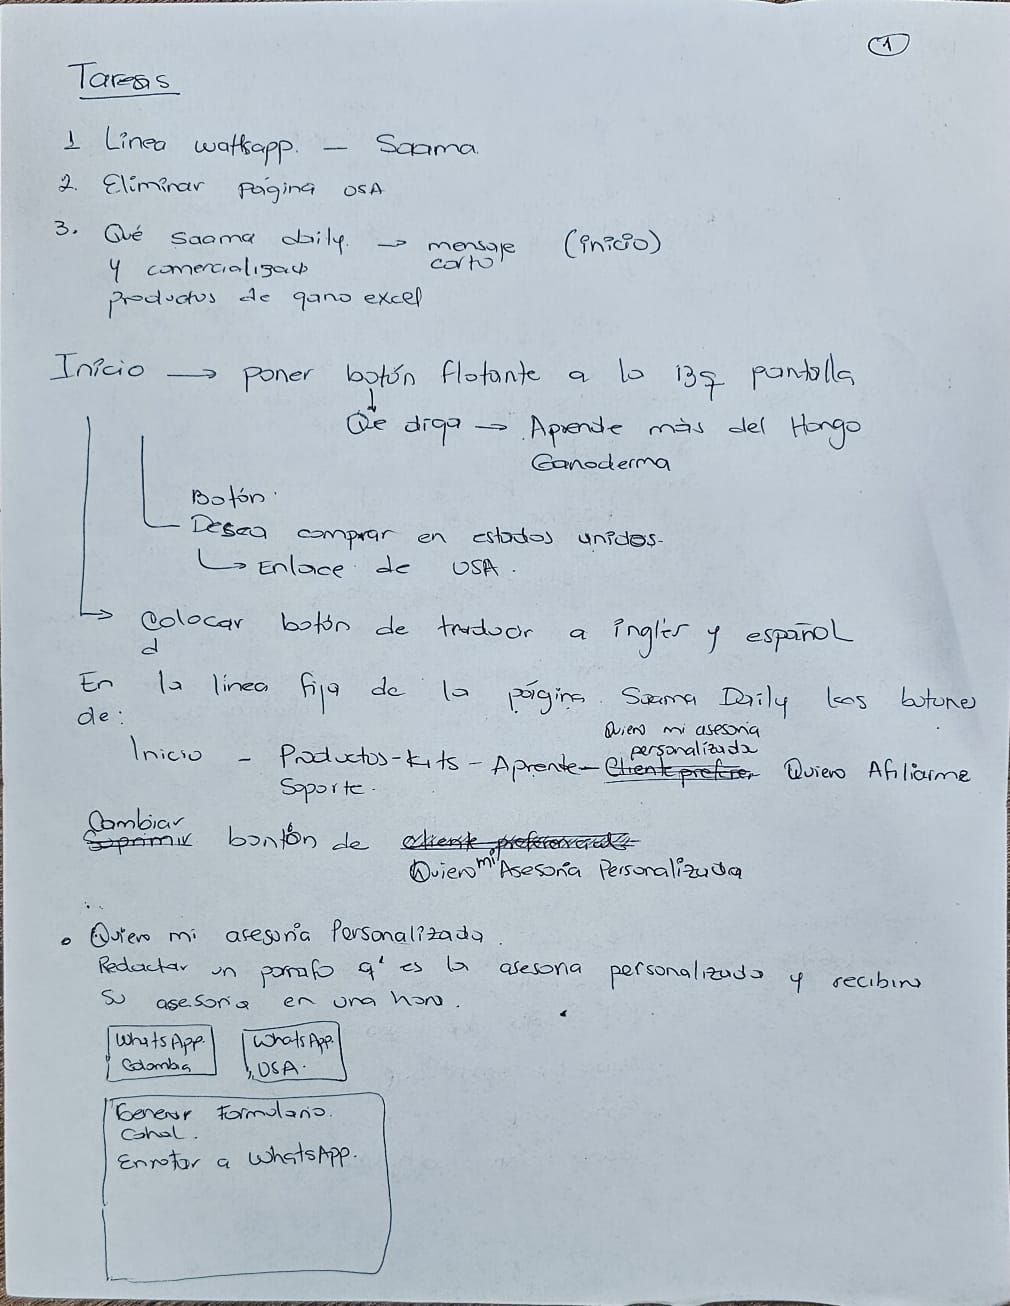 1
Tareas
1 Línea watsapp. – Saama.
2. Eliminar Página USA
3. Qué saama daily. → mensaje corto (inicio)
y comercializado
productos de gano excel
Inicio → poner botón flotante a lo izq pantalla
Que diga → Aprende más del Hongo
Ganoderma
Botón.
Desea comprar en estados unidos.
↳ Enlace de USA.
→ Colocar botón de traducir a inglés y español
d
En la línea fija de la página Saama Daily los botones
de:
Quiero mi asesoria
personalizada
Inicio - Productos-kits - Aprente - Cliente prefere, Quiero Afiliarme
Soporte.
Cambiar
Suprimir bontón de cliente preferencial
Quiero mi Asesoría Personalizada
• Quiero mi asesoría Personalizada.
Redactar un parrafo q' es la asesoria personalizada y recibira
su asesoria en una hora.
WhatsApp.
Colombia
WhatsApp.
USA.
Generar Formulario.
Enrotar a WhatsApp.